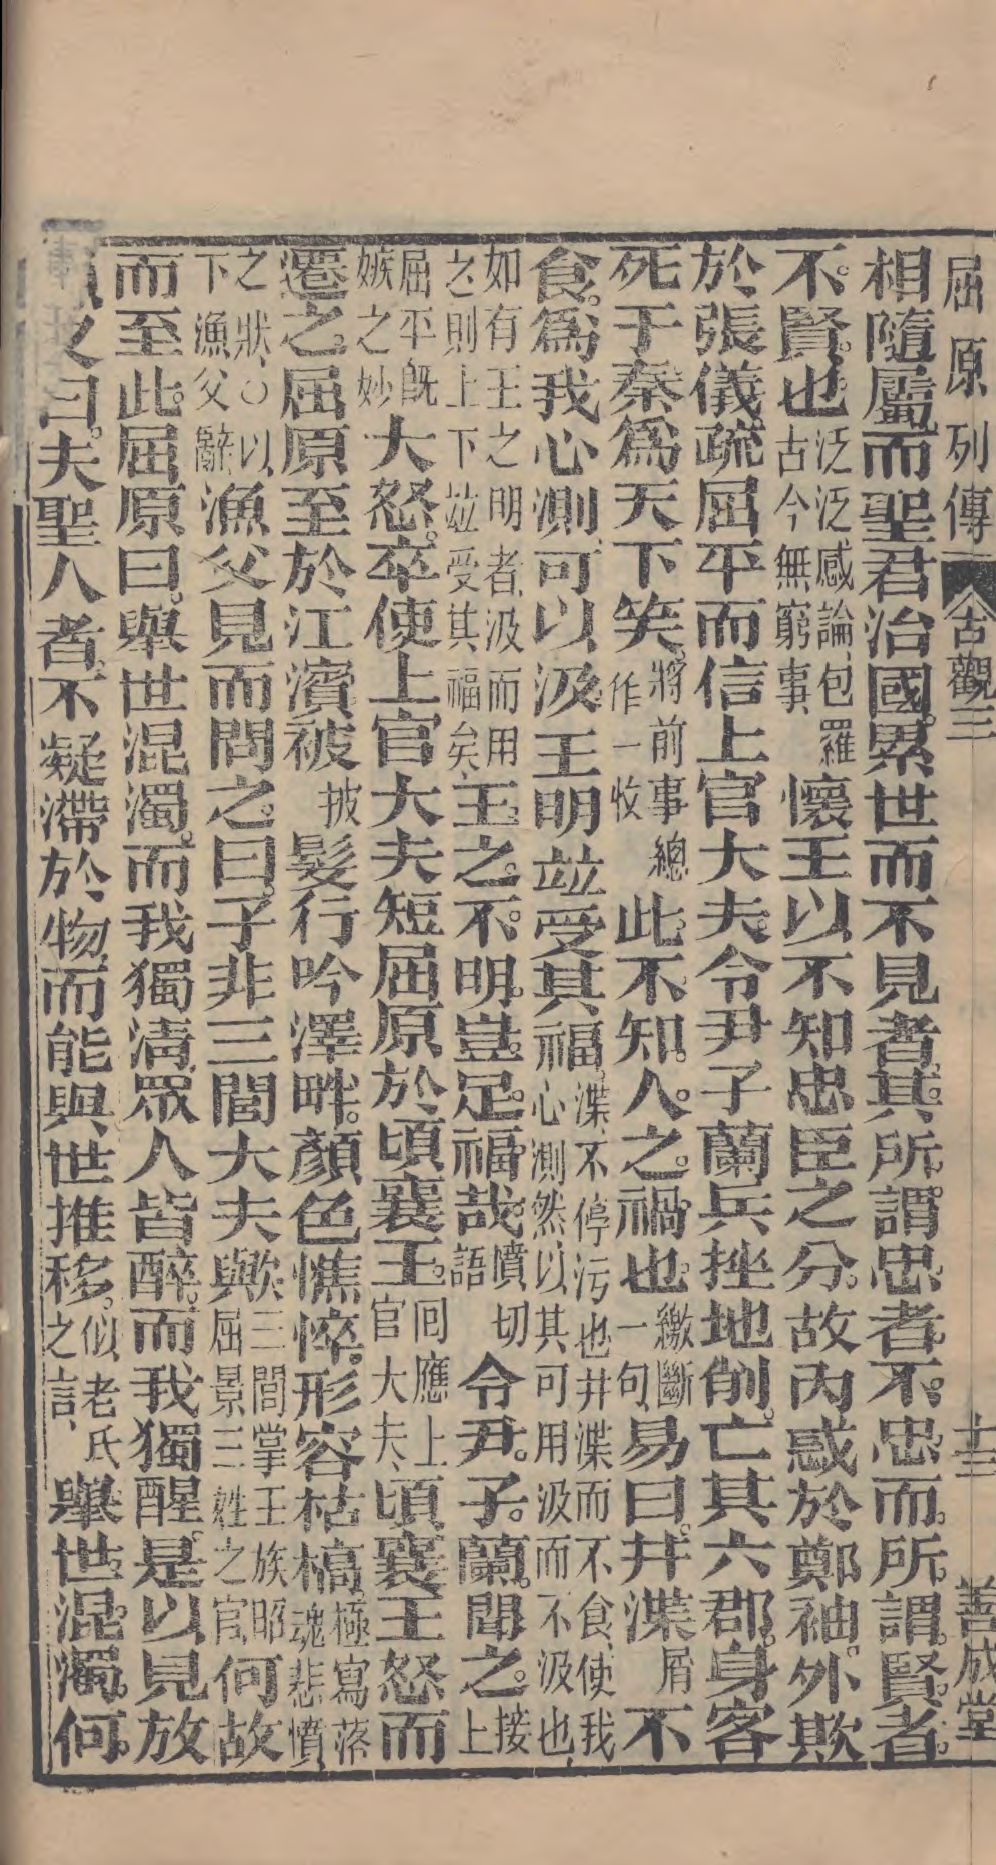 屈原列傳 古觀三 十三 善成堂
相隨屬而聖君治國累世而不見者其所謂忠者不忠而所謂賢者
不賢也泛泛感論包羅古今無窮事懷王以不知忠臣之分故內惑於鄭袖外欺
於張儀疏屈平而信上官大夫令尹子蘭兵挫地削亡其六郡身客
死于秦爲天下笑將前事總作一收此不知人之禍也繳斷一句易曰井渫屑不
食爲我心測可以汲王明竝受其福渫不停污也井渫而不食使我心測然以其可用汲而不汲也
如有王之明者汲而用之則上下竝受其福矣王之不明豈足福哉憤切語令尹子蘭聞之接上
屈平旣嫉之妙大怒卒使上官大夫短屈原於頃襄王囘應上官大夫頃襄王怒而
遷之屈原至於江濱被披髮行吟澤畔顏色憔悴形容枯槁極寫落魂悲憤
之狀○以下漁父辭漁父見而問之曰子非三閭大夫與歟三閭掌王族昭屈景三姓之官何故
而至此屈原曰舉世混濁而我獨清眾人皆醉而我獨醒是以見放
父曰夫聖人者不凝滯於物而能與世推移似老氏之言舉世混濁何